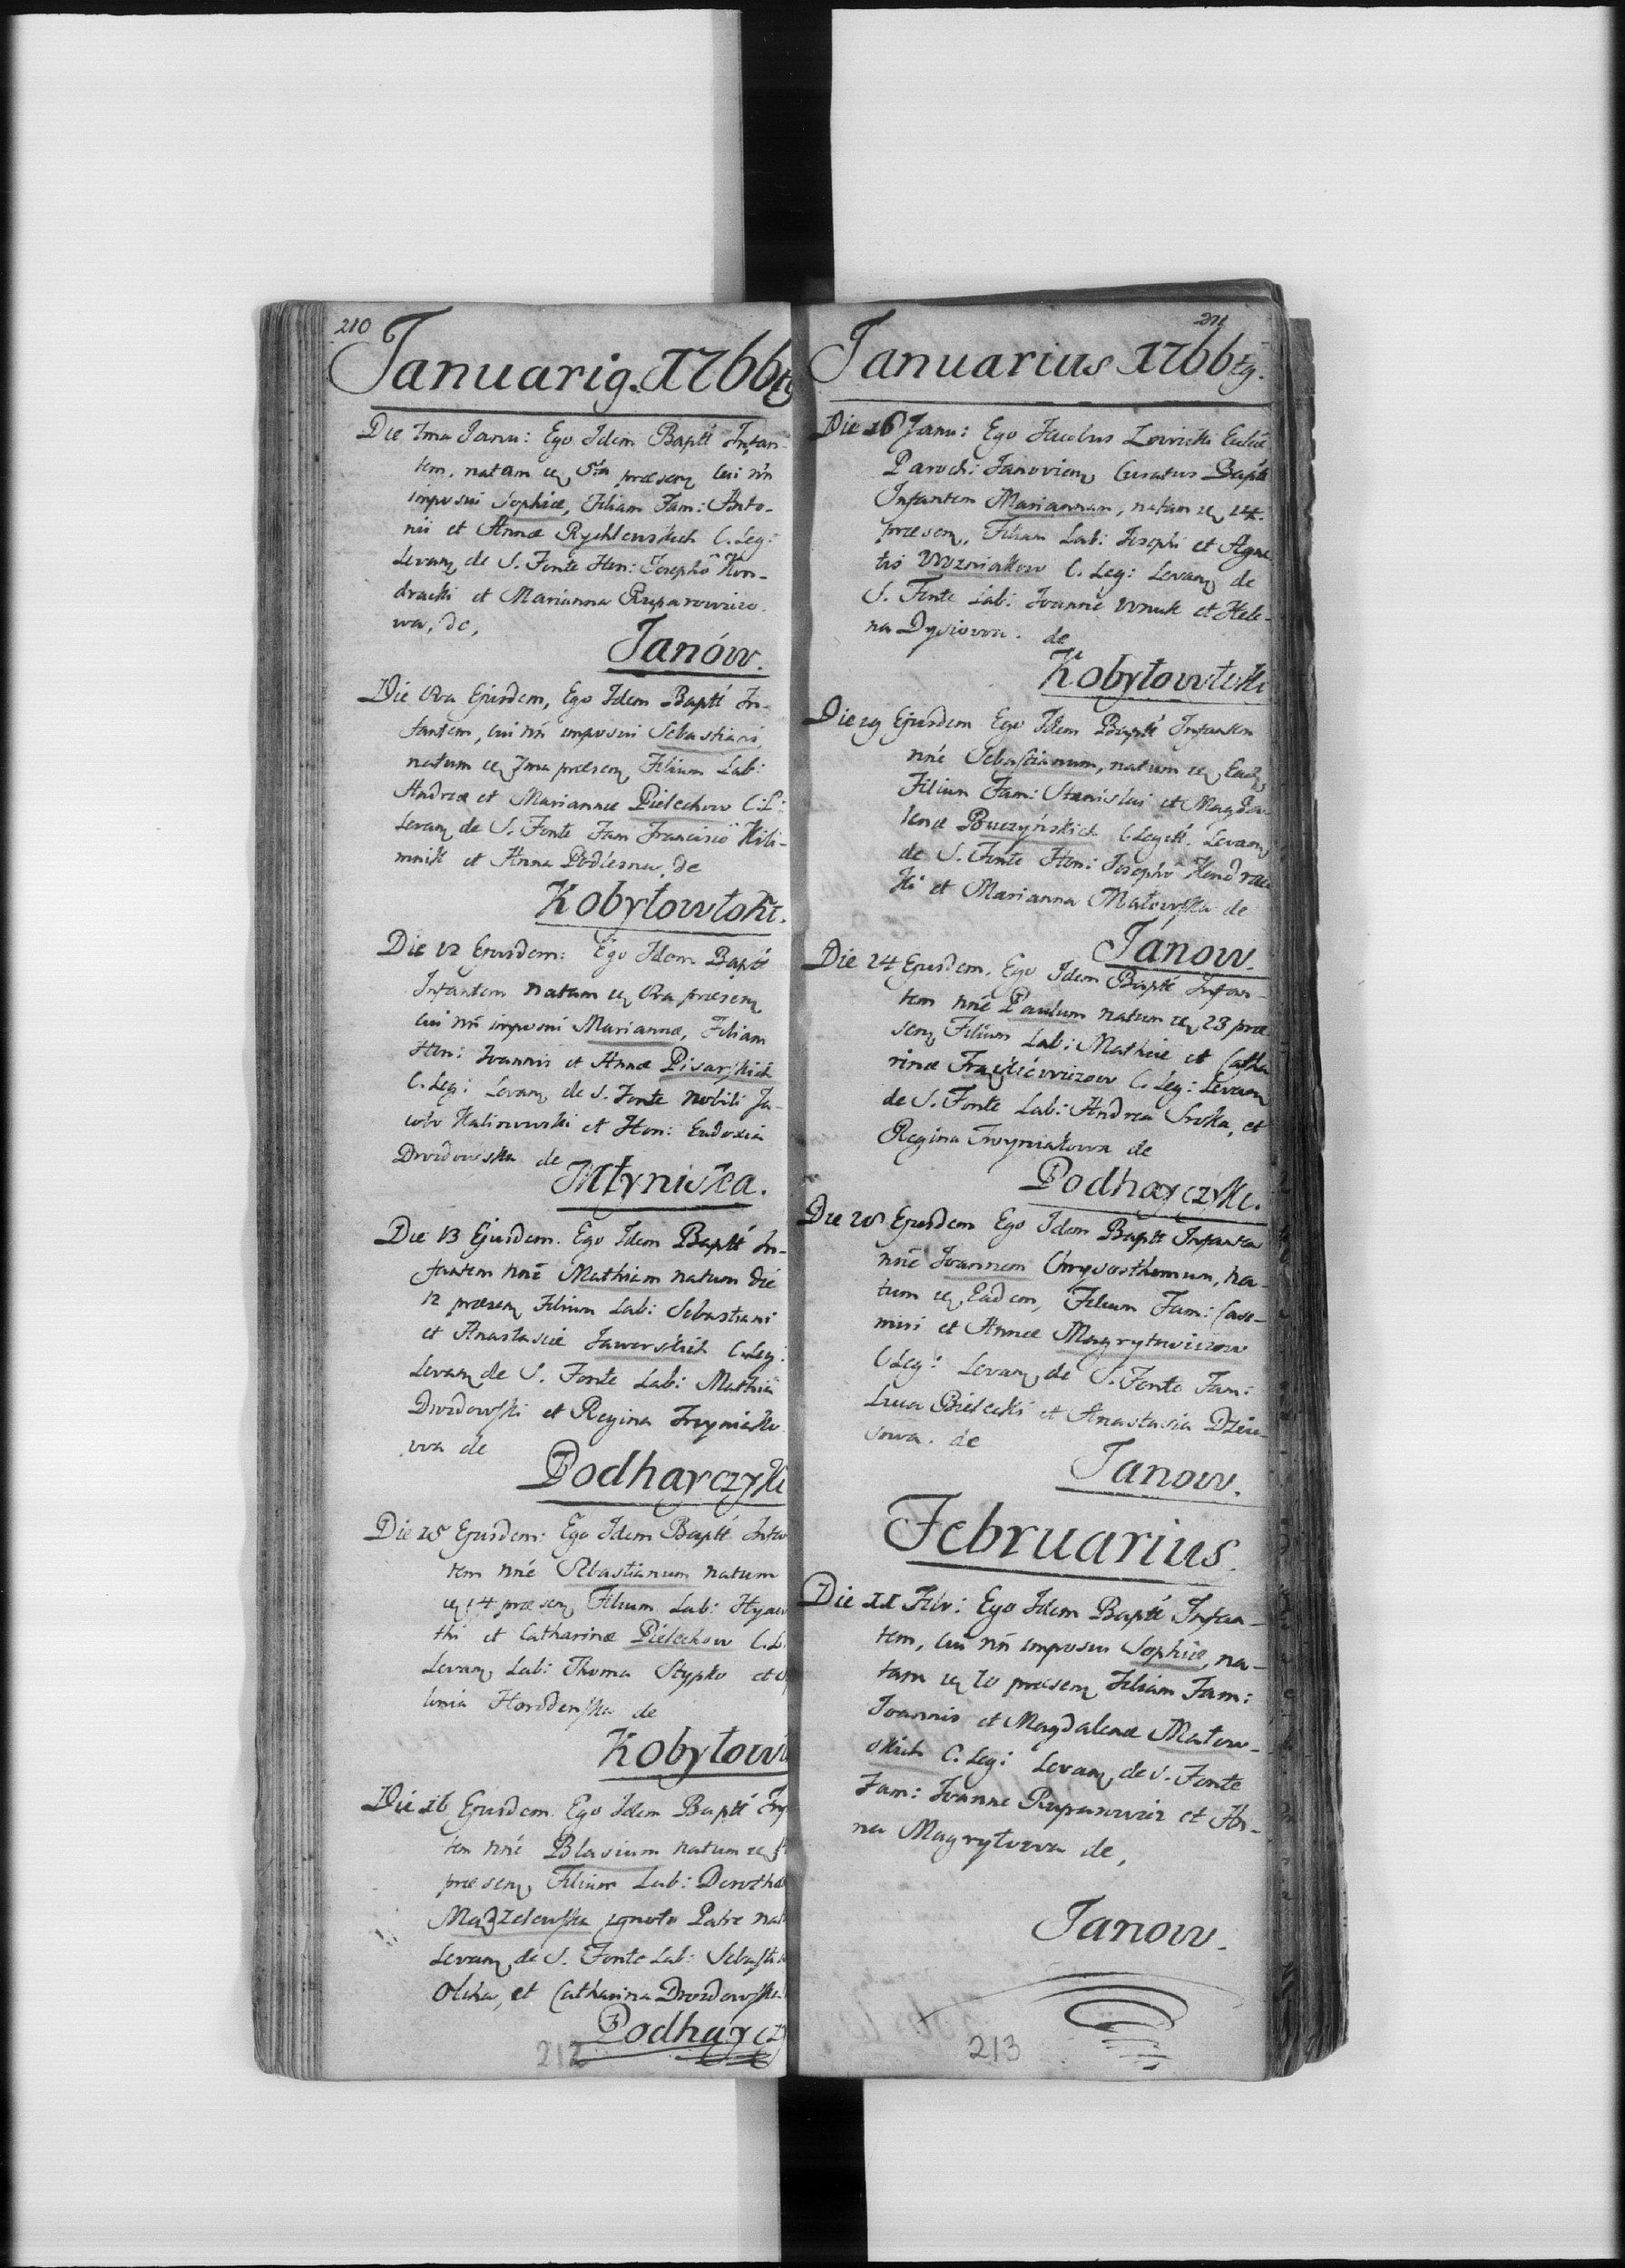 210
Januarig. 1766
Die 7ma Janu: Ego Idem Baptt Infan-
tem, natam 5ta præsen cui nn
imposui Sophiæ, Filiam Fam: Anto-
nii et Annæ Rychlewskich C. Leg:
Levan de S. Fonte Hon: Josepho Kon-
dracki et Marianna Ruparowiczo
wa, de,
Janów.
Die Ejusdem, Ego Idem Baptt In-
fantem, cui nn imposui Sebastiani,
natum 7ma præsen Filium Lab:
Andreæ et Mariannæ Pielechow C: L:
Levan de S. Fonte Fam Francisco Kili-
mnik et Anna Podlesna, de
Kobyłowłoki.
Die 12 Ejusdem: Ego Idem Baptt
Infantem natam præsen
cui nn imposui Mariannæ, Filiam
Hon: Joannis et Annæ Pisarskich
C. Leg: Levan de S. Fonte Nobili Ja-
cobo Kalinowski et Hon: Eudoxia
Drozdowska de
Młyniska.
Die 13 Ejusdem. Ego Idem Baptt In-
fantem nne Mathiam natum die
12 præsen Filium Lab: Sebastiani
et Anastasiæ Jaworskich C. Leg:
Levan de S. Fonte Lab: Mathia
Drozdowski et Regina Trynialko
wa de
Podhayczyki
Die 15 Ejusdem: Ego Idem Baptt Infan
tem nne Sebastianum natum
14 præsen Filium Lab: Hyacin
thi et Catharinæ Pielechow C. L.
Levan Lab: Thoma Stypko et
Horodenska de
Kobyłow
Die 16 Ejusdem. Ego Idem Baptt Inf
tem nne Blasium natum
præsen Filium Lab: Dorothe
ignoto Patre nat
Levan de S. Fonte Lab: Sebasti
Olcha, et Catharina Drozdowska
Podhaycz
212
211
Januarius 1766
Die 16 Janu: Ego Jacobus Eccliæ
Paroch: Janovien Curatus Baptt
Infantem Mariannam, natam 14.
præsen, Filiam Lab: Josephi et Agne
tis Wozniakow C. Leg: Levan de
S. Fonte Lab: Joanne Wnuk et Hele-
na Dysiowa. de
Kobyłowłoki
Die 19 Ejusdem Ego Idem Baptt Infantem
nne Sebastianum, natum Ead
Filium Fam: Stanislai et Magda-
lenæ Buczyńskich C Legitt. Levan
de S. Fonte Hon: Josepho Kondrac
ki et Marianna Małowska de
Janow.
Die 24 Ejusdem. Ego Idem Baptt Infan-
tem nne Paulum natum 23 præ
sen Filium Lab: Mathiæ et Catha
rinæ C. Leg: Levan
de S. Fonte Lab: Andrea Sroka, et
Regina Trynialowa de
Podhayczyki.
Die 28 Ejusdem Ego Idem Baptt Infantem
nne Joannem Chrysosthomum, na-
tum Eadem, Filium Fam: Casi-
miri et Annæ Magrytowiczow
C Leg: Levan de S. Fonte Fam:
Luca Bielecki et Anastasia
de
Janow.
Februarius.
Die 11 Febr: Ego Idem Baptt Infan-
tem, cui nn imposui Sophiæ, na-
tam 10 præsen Filiam Fam:
Joannis et Magdalenæ Małow-
skich C. Leg: Levan de S. Fonte
Fam: Joanne Ruparowicz et An-
na de,
Janow.
213